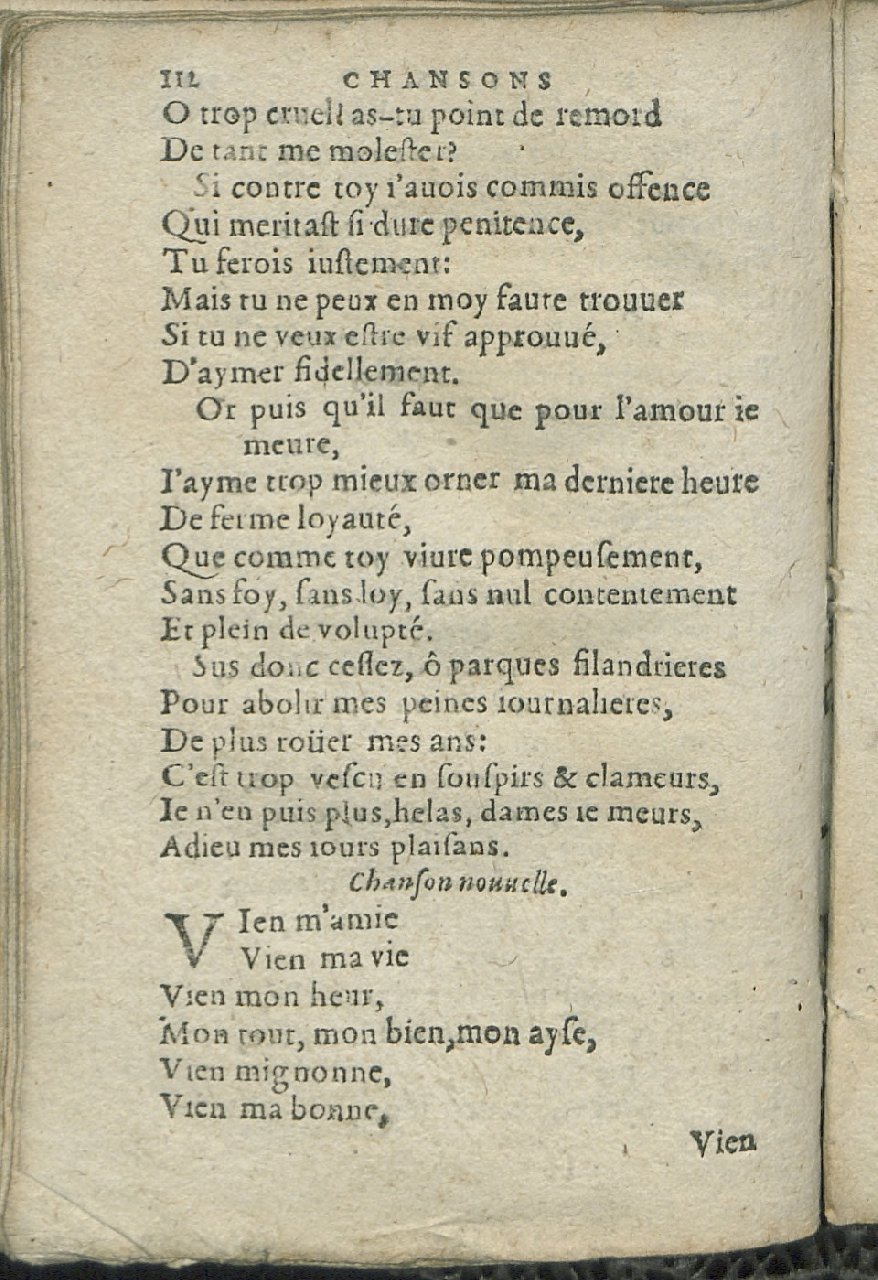 III. CHANSONS
O trop cruell as-tu point de remord
De tant me molester?
Si contre toy i'auois commis offence
Qui meritast si dure penitence,
Tu ferois iustement:
Mais tu ne peux en moy faute trouuer
Si tu ne veux estre vif approuué,
D'aymer fidellement.
Or puis qu'il faut que pour l'amour ie
meure,
I'ayme trop mieux orner ma derniere heure
De ferme loyauté,
Que comme toy viure pompeusement,
Sans foy, sans loy, sans nul contentement
Et plein de volupté.
Sus donc cessez, ô parques filandrieres
Pour abolir mes peines iournalieres,
De plus roüer mes ans:
C'est trop vescu en souspirs & clameurs,
Ie n'en puis plus, helas, dames ie meurs,
Adieu mes iours plaisans.
Chanson nouuelle.
VIen m'amie
Vien ma vie
Vien mon heur,
Mon tout, mon bien, mon ayse,
Vien mignonne,
Vien ma bonne,
Vien